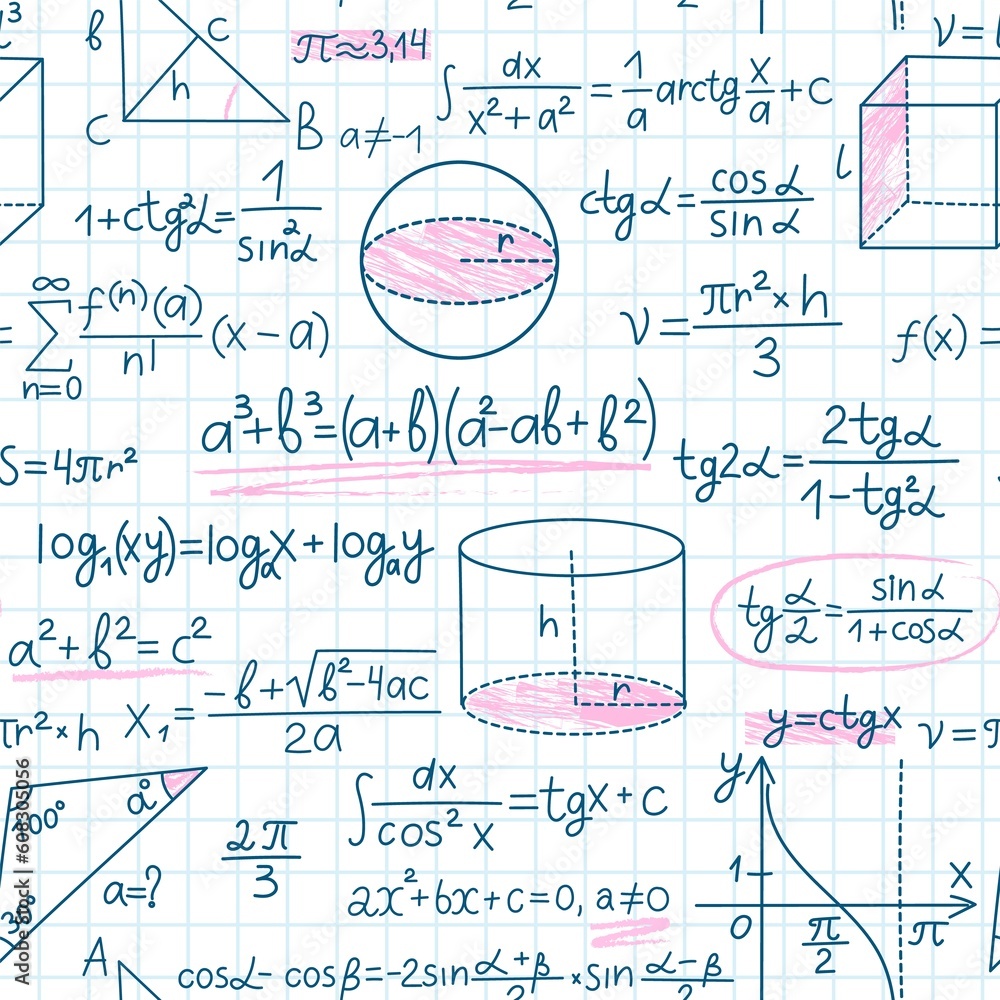 π≈3,14
B C
h
C B
a≠-1
∫ dx/(x²+a²) = 1/a arctg x/a + C
l
1+ctg²α = 1/sin²α
r
ctgα = cosα/sinα
= ∑ n=0 ∞ f⁽ⁿ⁾(a)/n! (x-a)
V = πr²×h/3
f(x) =
a³+b³=(a+b)(a²-ab+b²)
S=4πr²
tg2α = 2tgα/1-tg²α
log₁(xy)=logₐx+logₐy
h
r
tg α/2 = sinα/1+cosα
a²+b²=c²
πr²×h
X₁ = -b+√b²-4ac/2a
y=ctgx
V=
a°
100°
a=?
2π/3
∫ dx/cos²x = tgx+C
2x²+bx+c=0, a≠0
y
1
0
π/2
π
x
A
cosα- cosβ=-2sin α+β/2 ×sin α-β/2
Adobe Stock | #608305056